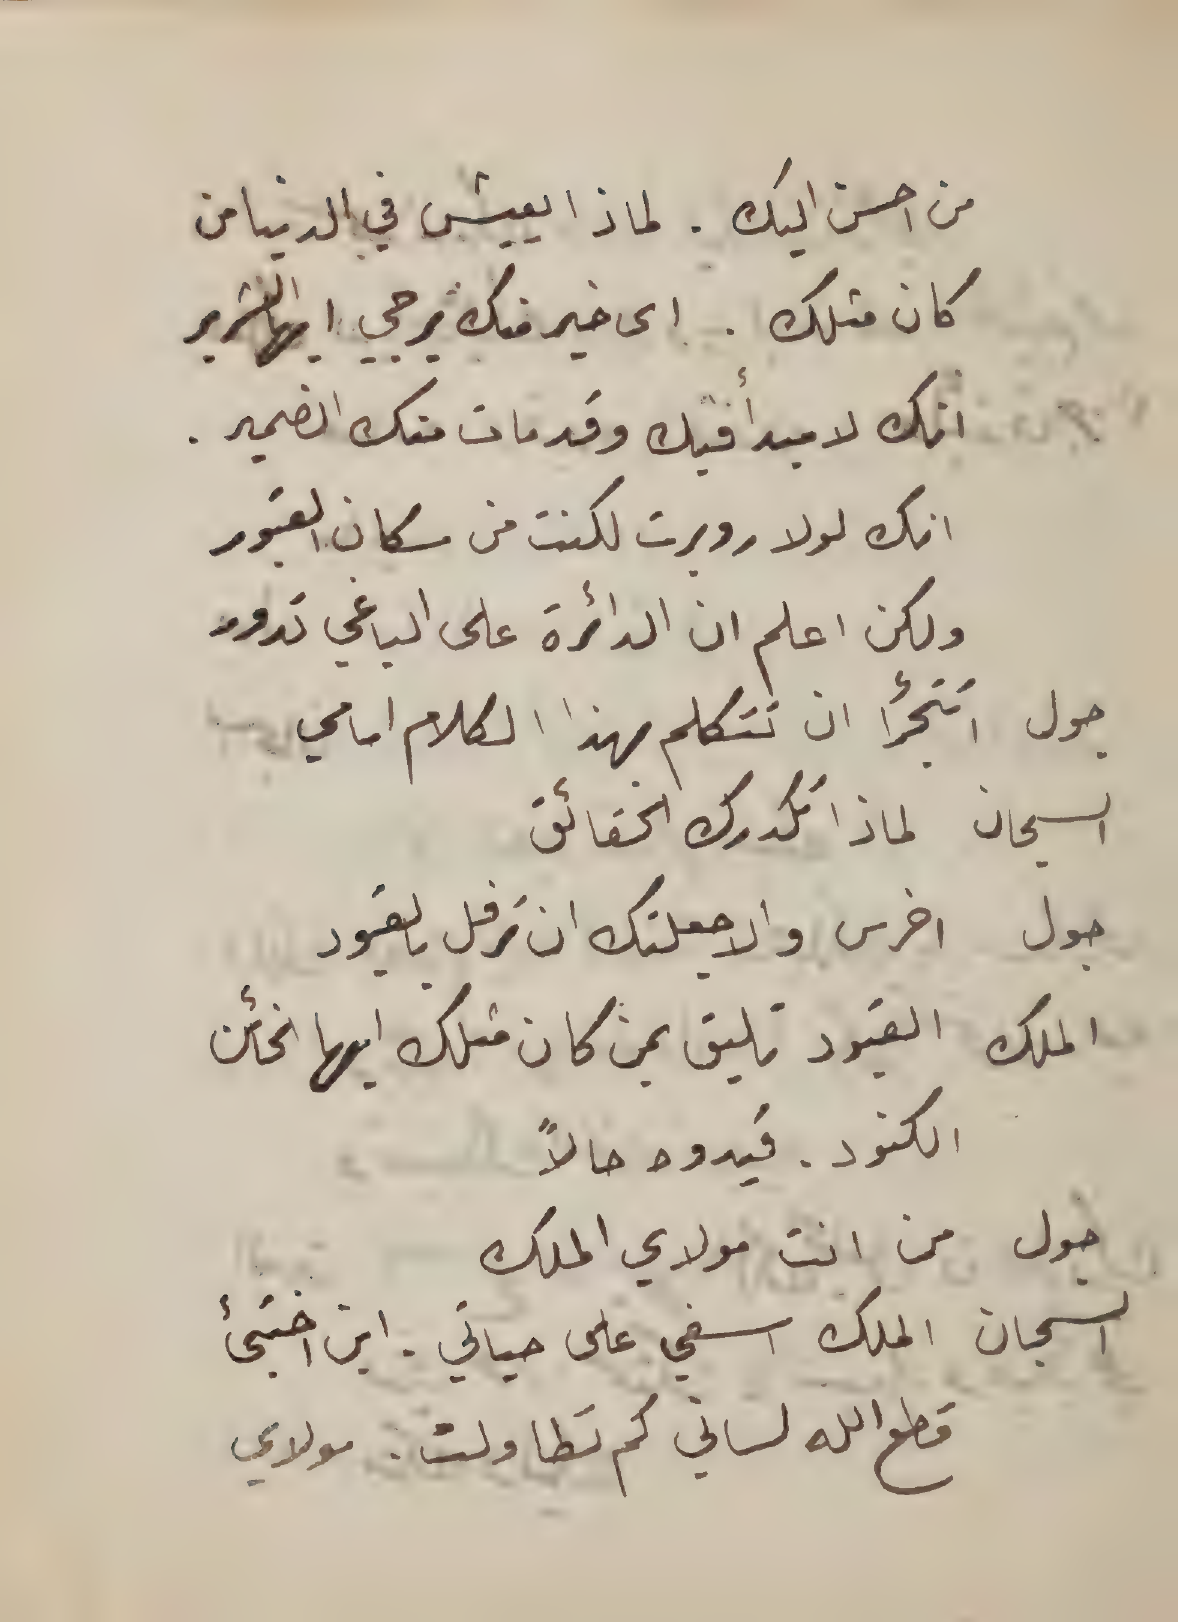 من احسن اليك . لماذا يعيش في الدنيا من
كان مثلك . اى خير منك يرجى ايها الشرير
انك لا مبدأ فيك وقد مات منك الضمير .
انك لولا روبرت لكنت من سكان القبور
ولكن اعلم ان الدائرة على الباغي تدور
جول اتتجرأ ان تتكلم بهذا الكلام امامي
السجان لماذا تكدرك الحقائق
جول اخرس والا جعلتك ان ترفل بالقيود
الملك القيود تليق بمن كان مثلك ايها الخائن
الكنود . قيدوه حالاً
جول من انت مولاي الملك
السجان الملك اسفي على حياتي . اين اختبئ
قطع الله لساني كم تطاولت . مولاي